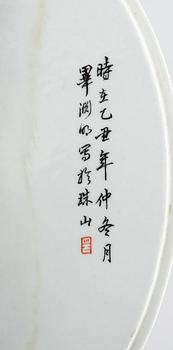 時在乙丑年仲冬月
畢渊明寫於珠山